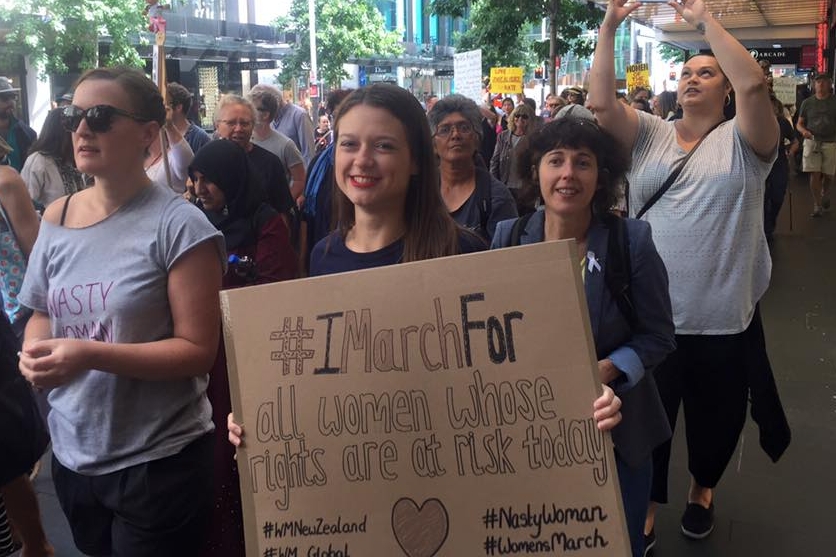 NASTY
WOMAN
ARCADE
#IMarchFor
all women whose
rights are at risk today
#WMNewZealand
#WM_Global
#NastyWoman
#WomensMarch